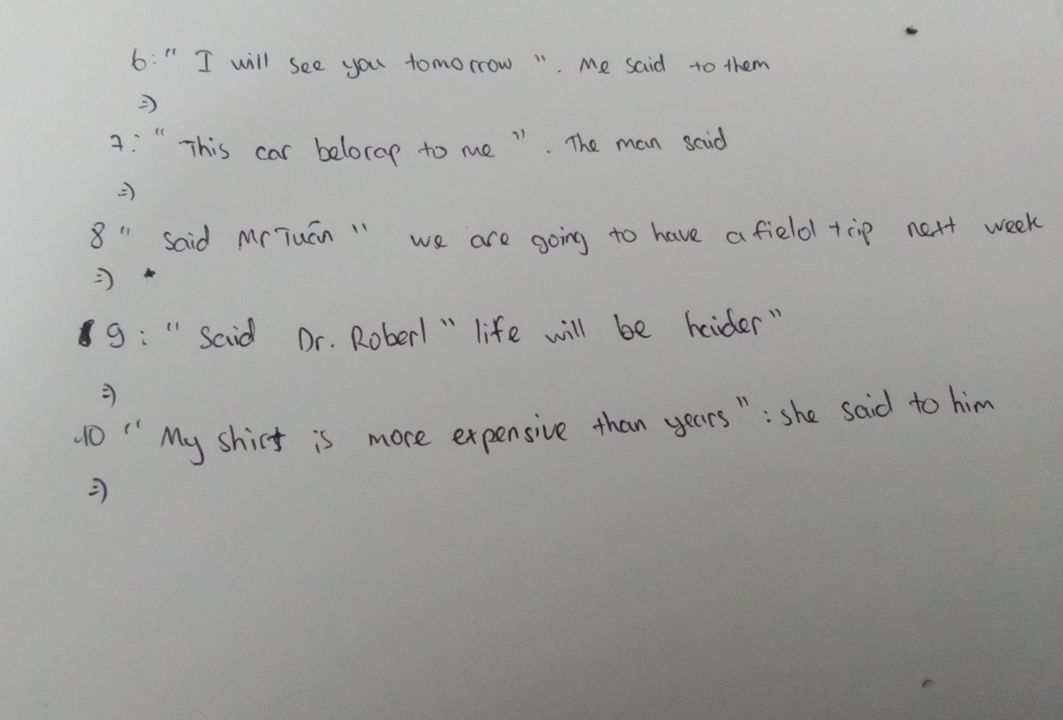 6: " I will see you tomorrow ". Me said to them
=)
7: " This car belorap to me ". The man said
=)
8 " said Mr Tuấn " we are going to have a field trip next week
=)
9 : " Said Dr. Roberl " life will be heider"
=)
10 " My shirt is more expensive than years" : she said to him
=)